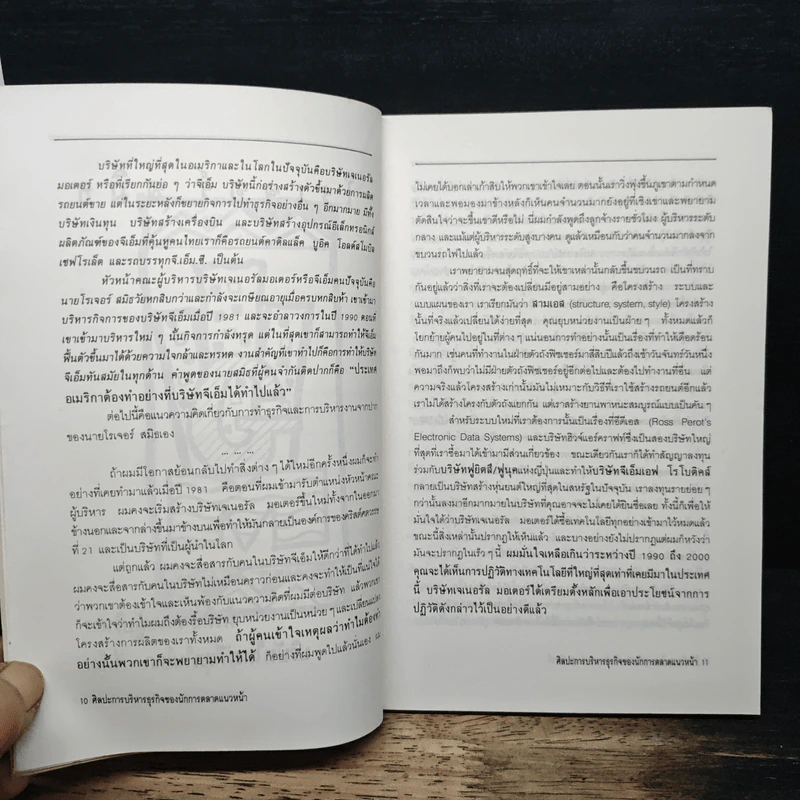 บริษัทที่ใหญ่ที่สุดในอเมริกาและในโลกในปัจจุบันคือบริษัทเจเนอรัล
มอเตอร์ หรือที่เรียกกันย่อ ๆ ว่าจีเอ็ม บริษัทนี้ก่อร่างสร้างตัวขึ้นมาด้วยการผลิต
รถยนต์ขาย แต่ในระยะหลังก็ขยายกิจการไปทำธุรกิจอย่างอื่น ๆ อีกมากมาย มีทั้ง
บริษัทเงินทุน บริษัทสร้างเครื่องบิน และบริษัทสร้างอุปกรณ์อีเล็กทรอนิกส์
ผลิตภัณฑ์ของจีเอ็มที่คุ้นหูคนไทยเราก็คือรถยนต์คาดิลแล็ค บูอิค โอลด์สโมบิล
เชฟโรเล็ต และรถบรรทุกจี.เอ็ม.ซี. เป็นต้น
หัวหน้าคณะผู้บริหารบริษัทเจเนอรัลมอเตอร์หรือจีเอ็มคนปัจจุบันคือ
นายโรเจอร์ สมิธวัยหกสิบกว่าและกำลังจะเกษียณอายุเมื่อครบหกสิบห้า เขาเข้ามา
บริหารกิจการของบริษัทจีเอ็มเมื่อปี 1981 และจะอำลาวงการในปี 1990 ตอนที่
เขาเข้ามาบริหารใหม่ ๆ นั้นกิจการกำลังทรุด แต่ในที่สุดเขาก็สามารถทำให้จีเอ็ม
ฟื้นตัวขึ้นมาได้ด้วยความใจกล้าและทรหด งานสำคัญที่เขาทำไปก็คือการทำให้บริษัท
จีเอ็มทันสมัยในทุกด้าน คำพูดของนายสมิธที่ผู้คนจำกันติดปากก็คือ "ประเทศ
อเมริกาต้องทำอย่างที่บริษัทจีเอ็มได้ทำไปแล้ว"
ต่อไปนี้คือแนวความคิดเกี่ยวกับการทำธุรกิจและการบริหารงานจากปาก
ของนายโรเจอร์ สมิธเอง
... ... ...
ถ้าผมมีโอกาสย้อนกลับไปทำสิ่งต่าง ๆ ได้ใหม่อีกครั้งหนึ่งผมก็จะทำ
อย่างที่เคยทำมาแล้วเมื่อปี 1981 คือตอนที่ผมเข้ามารับตำแหน่งหัวหน้าคณะ
ผู้บริหาร ผมคงจะเริ่มสร้างบริษัทเจเนอรัล มอเตอร์ขึ้นใหม่ทั้งจากในออกมา
ข้างนอกและจากล่างขึ้นมาข้างบนเพื่อทำให้มันกลายเป็นองค์การของคริสต์ศตวรรษ
ที่ 21 และเป็นบริษัทที่เป็นผู้นำในโลก
แต่ถูกแล้ว ผมคงจะสื่อสารกับคนในบริษัทจีเอ็มให้ดีกว่าที่ได้ทำไปแล้ว
ผมคงจะสื่อสารกับคนในบริษัทไม่เหมือนคราวก่อนและคงจะทำให้เป็นที่แน่ใจได้
ว่าพวกเขาต้องเข้าใจและเห็นพ้องกับแนวความคิดที่ผมมีต่อบริษัท แล้วพวกเขา
ก็จะเข้าใจว่าทำไมผมถึงต้องรื้อบริษัท ยุบหน่วยงานเป็นหน่วย ๆ และเปลี่ยนแปลง
โครงสร้างการผลิตของเราทั้งหมด ถ้าผู้คนเข้าใจเหตุผลว่าทำไมต้องทำ
อย่างนั้นพวกเขาก็จะพยายามทำให้ได้ ก็อย่างที่ผมพูดไปแล้วนั่นเอง ผม
10 ศิลปะการบริหารธุรกิจของนักการตลาดแนวหน้า
ไม่เคยได้บอกเล่าเก้าสิบให้พวกเขาเข้าใจเลย ตอนนั้นเราวิ่งพุ่งขึ้นภูเขาตามกำหนด
เวลาและพอมองมาข้างหลังก็เห็นคนจำนวนมากยังอยู่ที่เชิงเขาและพยายาม
ตัดสินใจว่าจะขึ้นเขาดีหรือไม่ นี่ผมกำลังพูดถึงลูกจ้างรายชั่วโมง ผู้บริหารระดับ
กลาง และแม้แต่ผู้บริหารระดับสูงบางคน ดูแล้วเหมือนกับว่าคนจำนวนมากลงจาก
ขบวนรถไฟไปแล้ว
เราพยายามจนสุดฤทธิ์ที่จะให้เขาเหล่านั้นกลับขึ้นขบวนรถ เป็นที่ทราบ
กันอยู่แล้วว่าสิ่งที่เราจะต้องเปลี่ยนมีอยู่สามอย่าง คือโครงสร้าง ระบบและ
แบบแผนของเรา เราเรียกมันว่า สามเอส (structure, system, style) โครงสร้าง
นั้นที่จริงแล้วเปลี่ยนได้ง่ายที่สุด คุณยุบหน่วยงานเป็นฝ่าย ๆ ทั้งหมดแล้วก็
โยกย้ายผู้คนไปอยู่ในที่ต่าง ๆ แน่นอนการทำอย่างนั้นเป็นเรื่องที่ทำให้เดือดร้อน
กันมาก เช่นคนที่ทำงานในฝ่ายตัวถังฟิชเชอร์มาสี่สิบปีแล้วเช้าวันจันทร์วันหนึ่ง
พอมาถึงก็พบว่าไม่มีฝ่ายตัวถังฟิชเชอร์อยู่อีกต่อไปและต้องไปทำงานที่อื่น แต่
ความจริงแล้วโครงสร้างเก่านั้นมันไม่เหมาะกับวิธีที่เราใช้สร้างรถยนต์อีกแล้ว
เราไม่ได้สร้างโครงกับตัวถังแยกกัน แต่เราสร้างยานพาหนะสมบูรณ์แบบเป็นคัน ๆ
สำหรับระบบใหม่ที่เราต้องการนั้นเป็นเรื่องที่อีดีเอส (Ross Perot's
Electronic Data Systems) และบริษัทฮิวจ์แอร์คราฟท์ซึ่งเป็นสองบริษัทใหญ่
ที่สุดที่เราซื้อมาได้เข้ามามีส่วนเกี่ยวข้อง ขณะเดียวกันเราก็ได้ทำสัญญาลงทุน
ร่วมกับบริษัทฟูยิตสึ/ฟูนุคแห่งญี่ปุ่นและทำให้บริษัทจีเอ็มเอฟ โรโบติคส์
กลายเป็นบริษัทสร้างหุ่นยนต์ใหญ่ที่สุดในสหรัฐในปัจจุบัน เราลงทุนรายย่อย ๆ
กว่านั้นลงมาอีกมากมายในบริษัทที่คุณอาจจะไม่เคยได้ยินชื่อเลย ทั้งนี้ก็เพื่อให้
มั่นใจได้ว่าบริษัทเจเนอรัล มอเตอร์ได้ซื้อเทคโนโลยีทุกอย่างเข้ามาไว้หมดแล้ว
ขณะนี้สิ่งเหล่านั้นปรากฏให้เห็นแล้ว และบางอย่างยังไม่ปรากฏแต่ผมก็หวังว่า
มันจะปรากฏในเร็ว ๆ นี้ ผมมั่นใจเหลือเกินว่าระหว่างปี 1990 ถึง 2000
คุณจะได้เห็นการปฏิวัติทางเทคโนโลยีที่ใหญ่ที่สุดเท่าที่เคยมีมาในประเทศ
นี้ บริษัทเจเนอรัล มอเตอร์ได้เตรียมตั้งหลักเพื่อเอาประโยชน์จากการ
ปฏิวัติดังกล่าวไว้เป็นอย่างดีแล้ว
ศิลปะการบริหารธุรกิจของนักการตลาดแนวหน้า 11